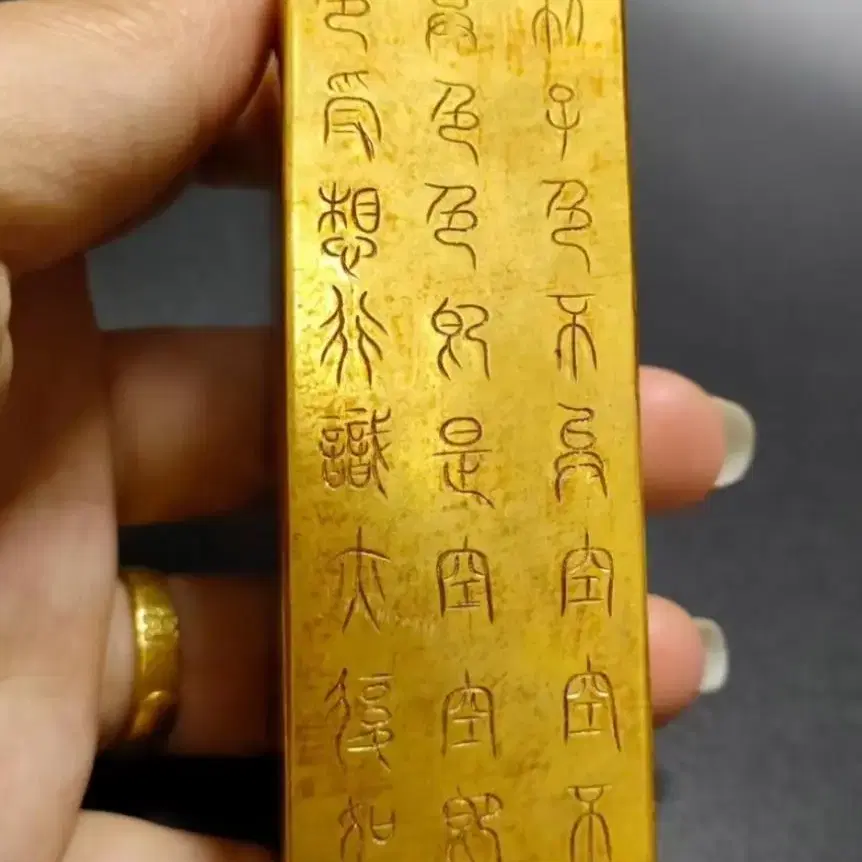 利子色不異空空不
異色色即是空空即
色受想行識亦復如